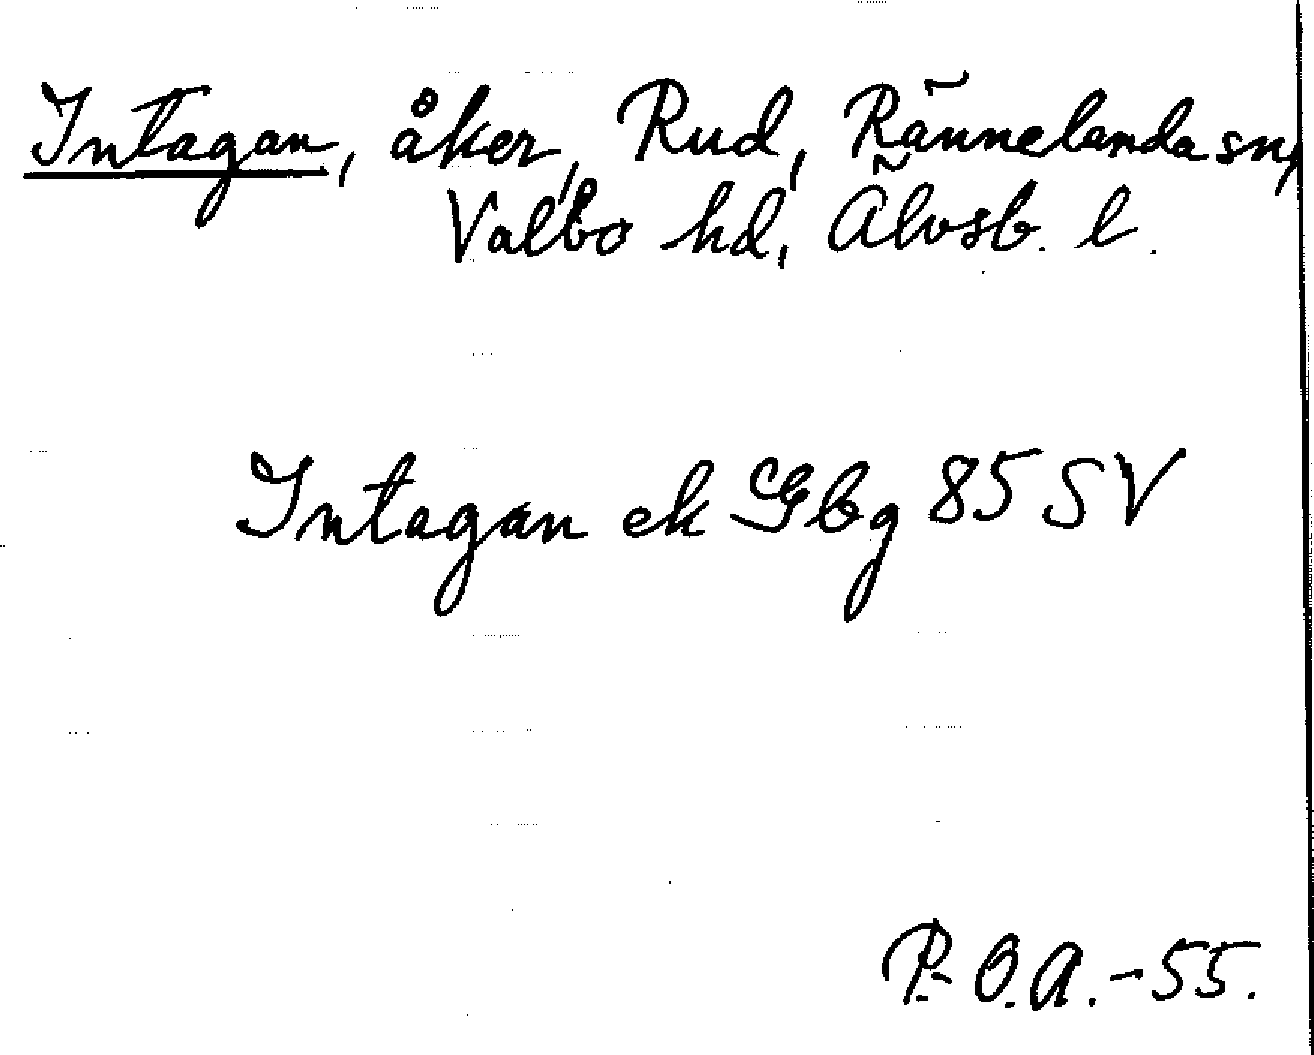 Intagan, åker, Rud, Rännelanda sn,
Valbo hd, Älvsb. l.
Intagan ek Gbg 85 SV
P.-O.A. -55.